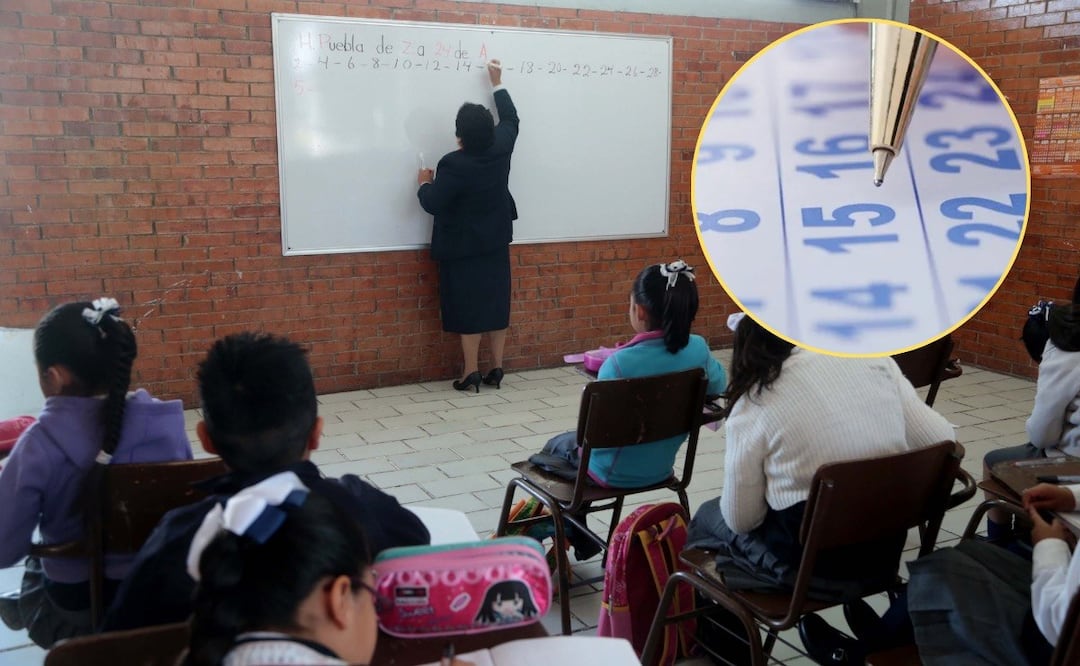 H. Puebla de Z a 24 de A
2 - 4 - 6 - 8 - 10 - 12 - 14 - - 18 - 20 - 22 - 24 - 26 - 28 -
5 -
9 16 17 23
8 15 22
14